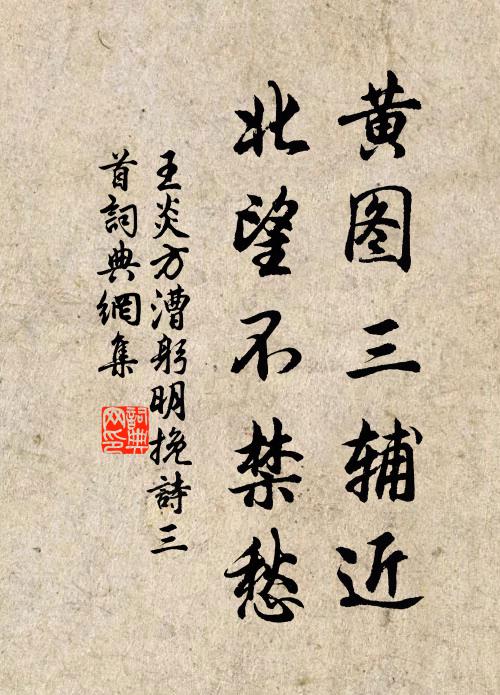 黄图三辅近
北望不禁愁
王炎方漕躬明挽詩三
首詞典網集
詞典网印